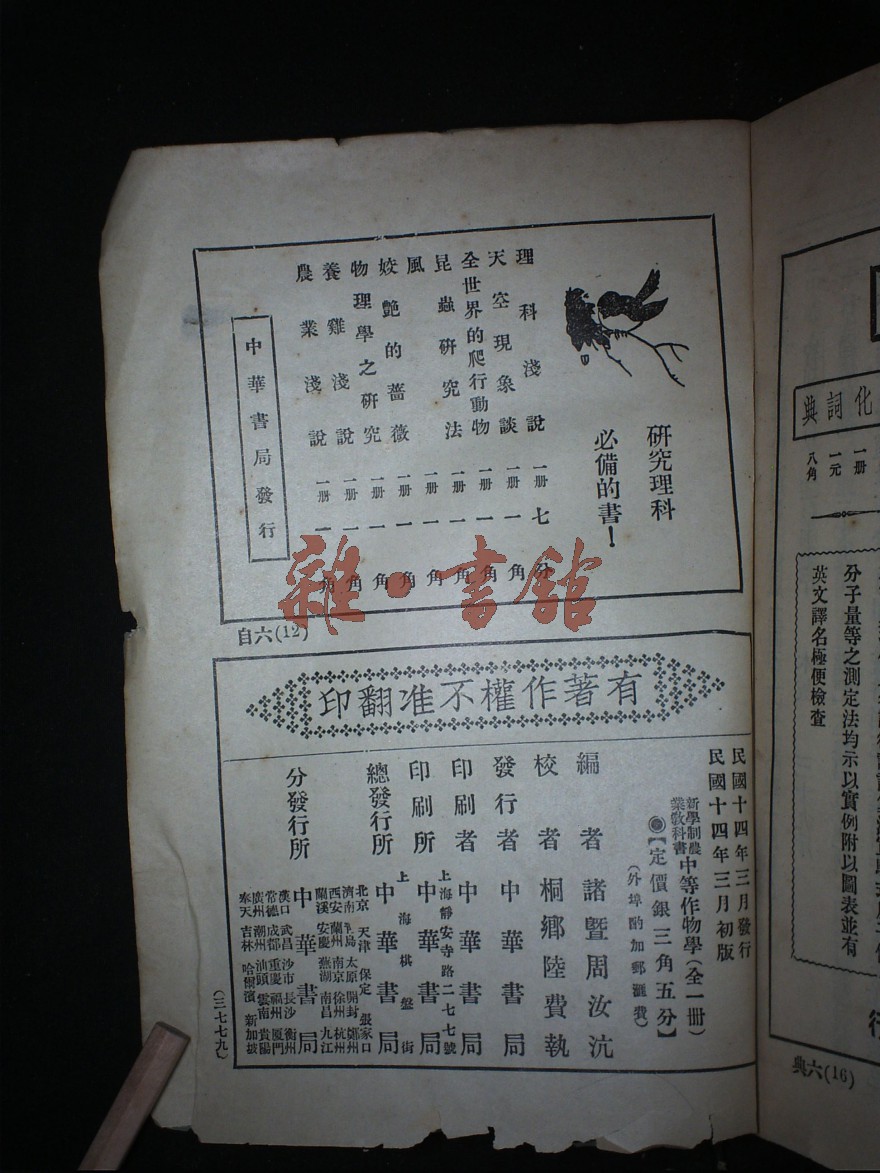 研究理科
必備的書！
理科淺說 一册 七分
天空現象談 一册 一角
全世界的爬行動物 一册 一角
昆蟲研究法 一册 一角
風 一册 一角
姣艷的薔薇 一册 一角
物理學之研究 一册 一角
養雞淺說 一册 一角
農業淺說 一册 一角
中華書局發行
自六(12)
雜·書館
有著作權不准翻印
民國十四年三月發行
民國十四年三月初版
新學制農業教科書 中等作物學（全一冊）
◉【定價銀三角五分】
（外埠酌加郵滙費）
編者 諸暨周汝沆
校者 桐鄉陸費執
發行者 中華書局
印刷者 中華書局
印刷所 上海靜安寺路二七七號 中華書局
總發行所 上海棋盤街 中華書局
分發行所 中華書局
北京 天津 保定 張家口
濟南 青島 太原 開封 鄭州
西安 蘭州 南京 徐州 杭州
蘭溪 安慶 蕪湖 南昌 九江
漢口 武昌 沙市 長沙 衡州
常德 成都 重慶 福州 厦門
廣州 潮州 汕頭 雲南 貴陽
奉天 吉林 哈爾濱 新加坡
（三七七九）
化詞典
一册
一元
八角
分子量等之測定法均示以實例附以圖表並有
英文譯名極便檢查
行
典六(16)